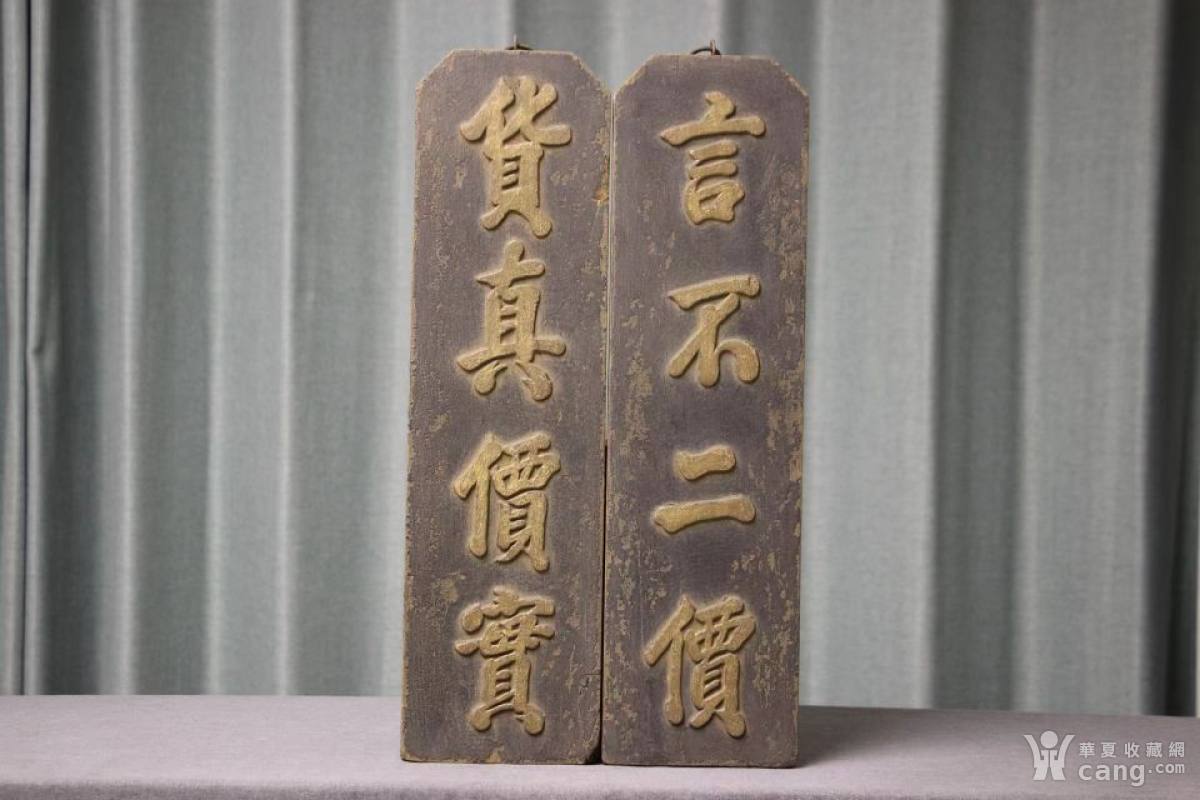 言不二價
貨真價實
華夏收藏網
cang.com